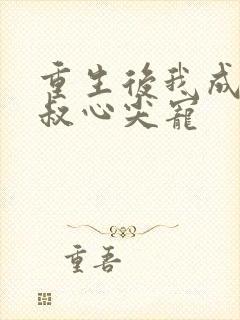 重生後我成
叔心尖寵
重吾